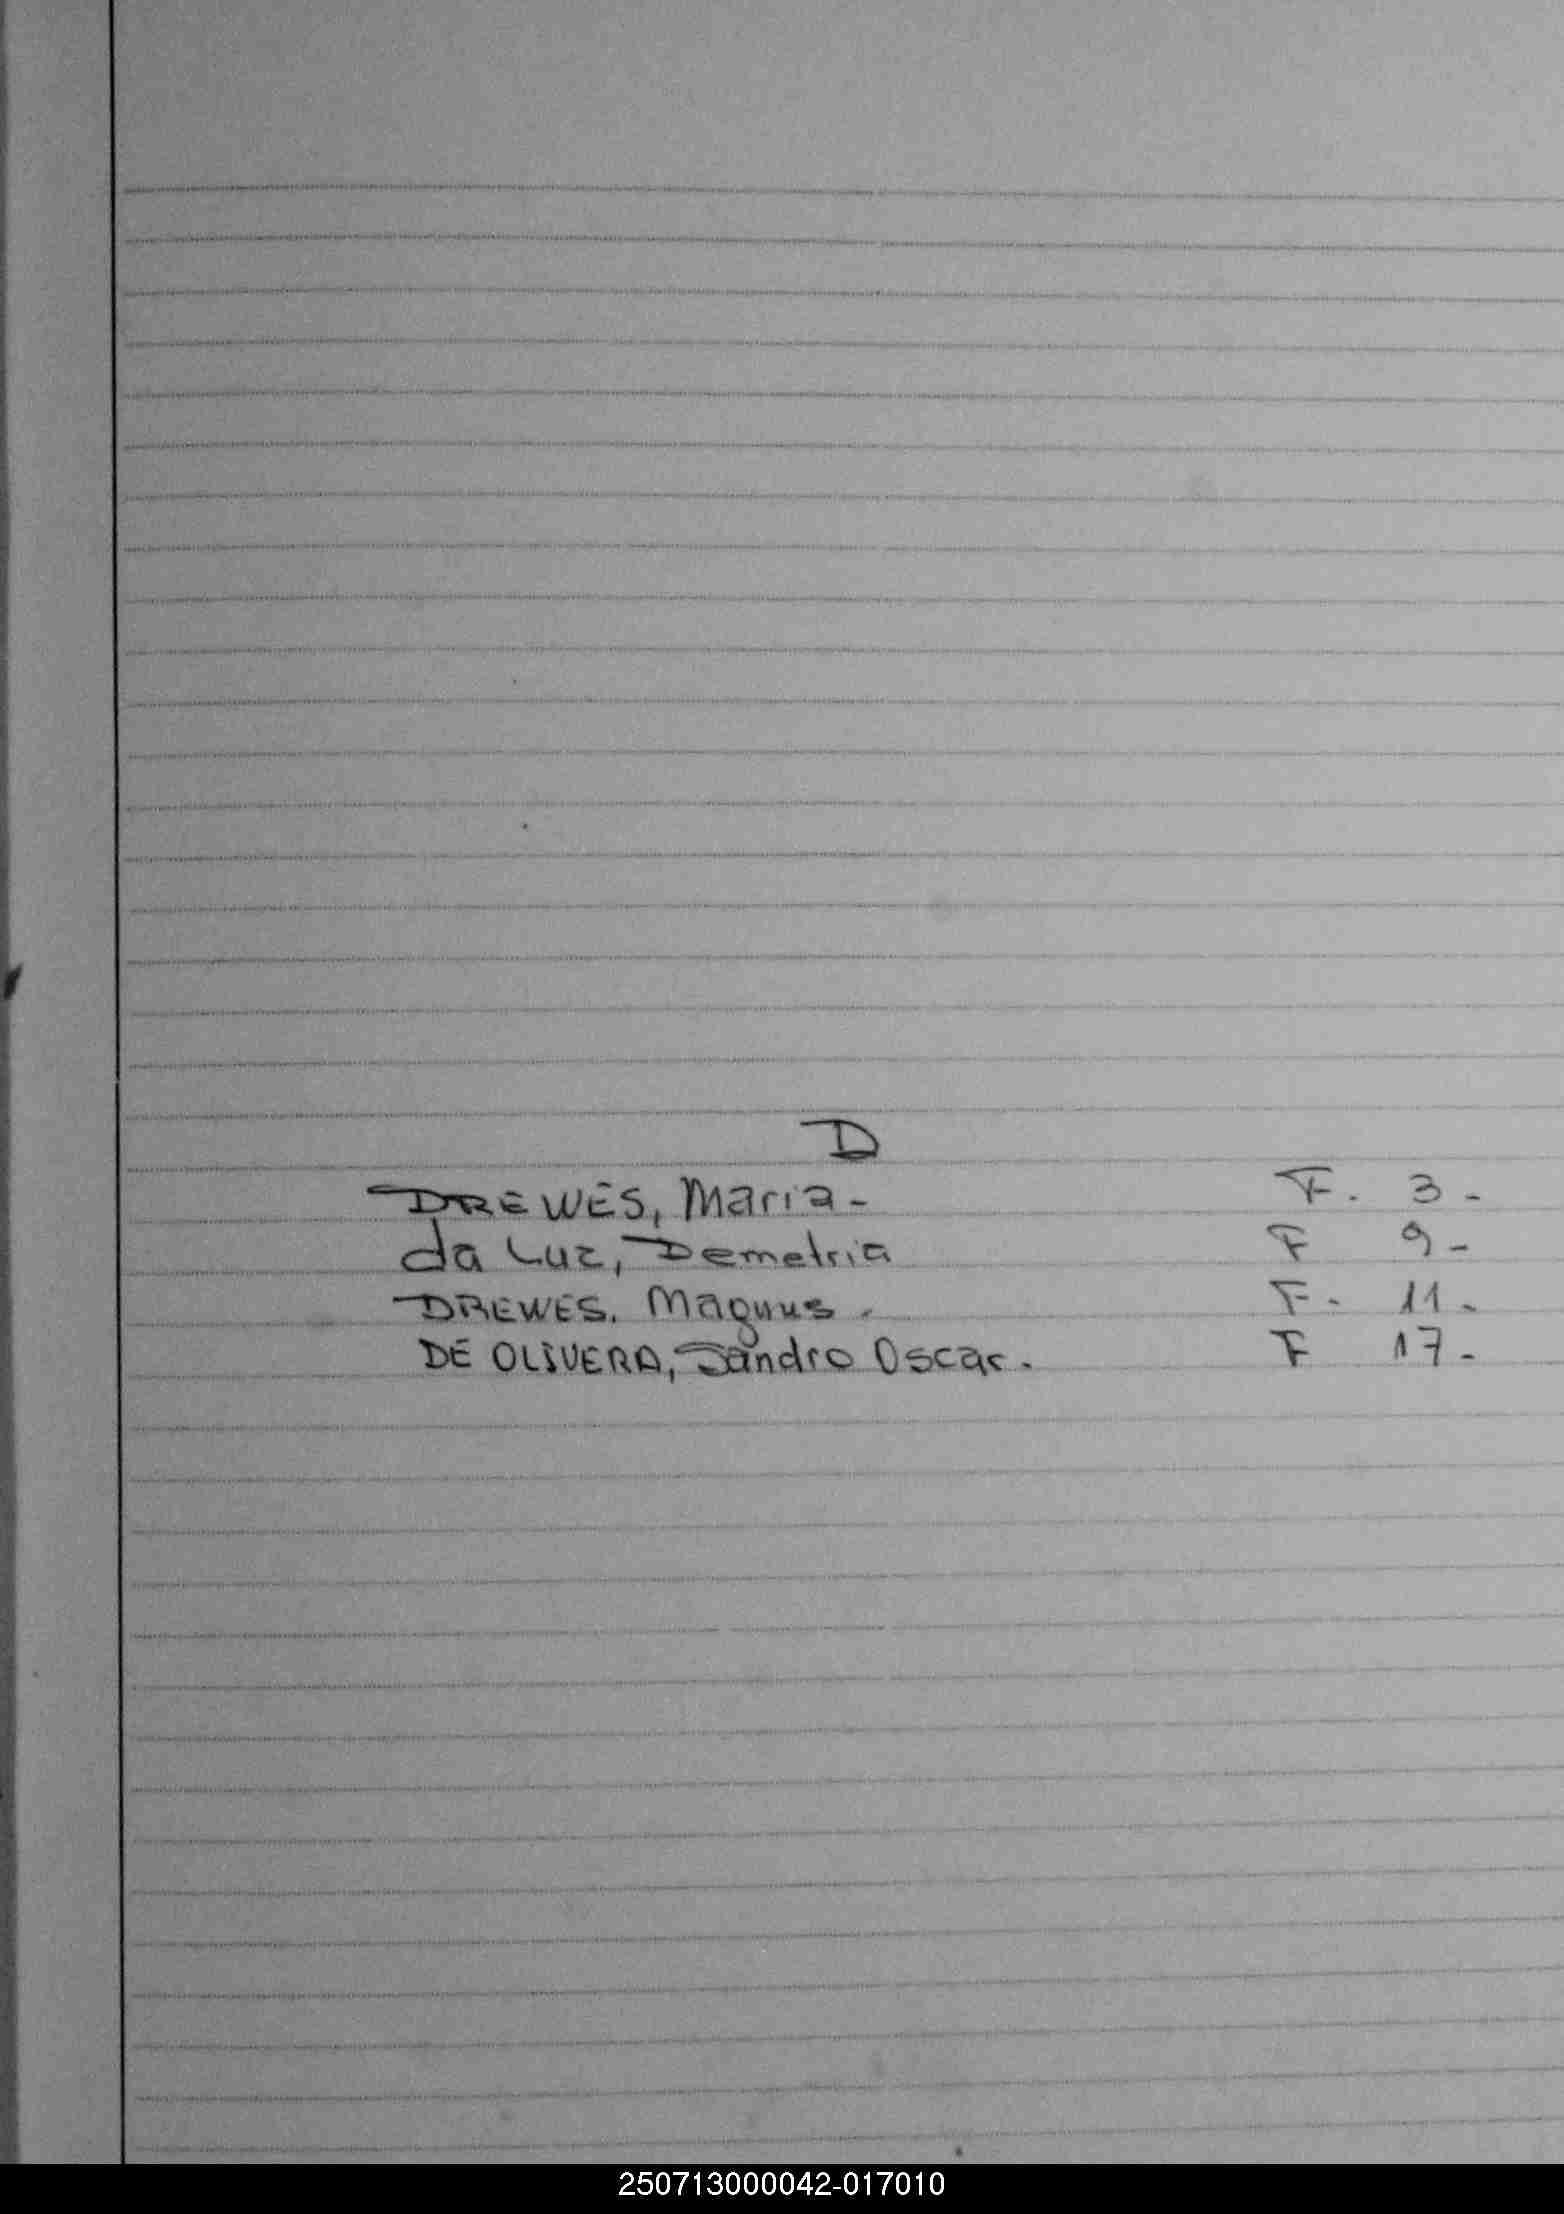 D
DREWES, Maria - F. 3 -
da Luz, Demetria F 9 -
DREWES. Magnus. F. 11 -
DE OLIVERA, Sandro Oscar. F 17 -
250713000042-017010